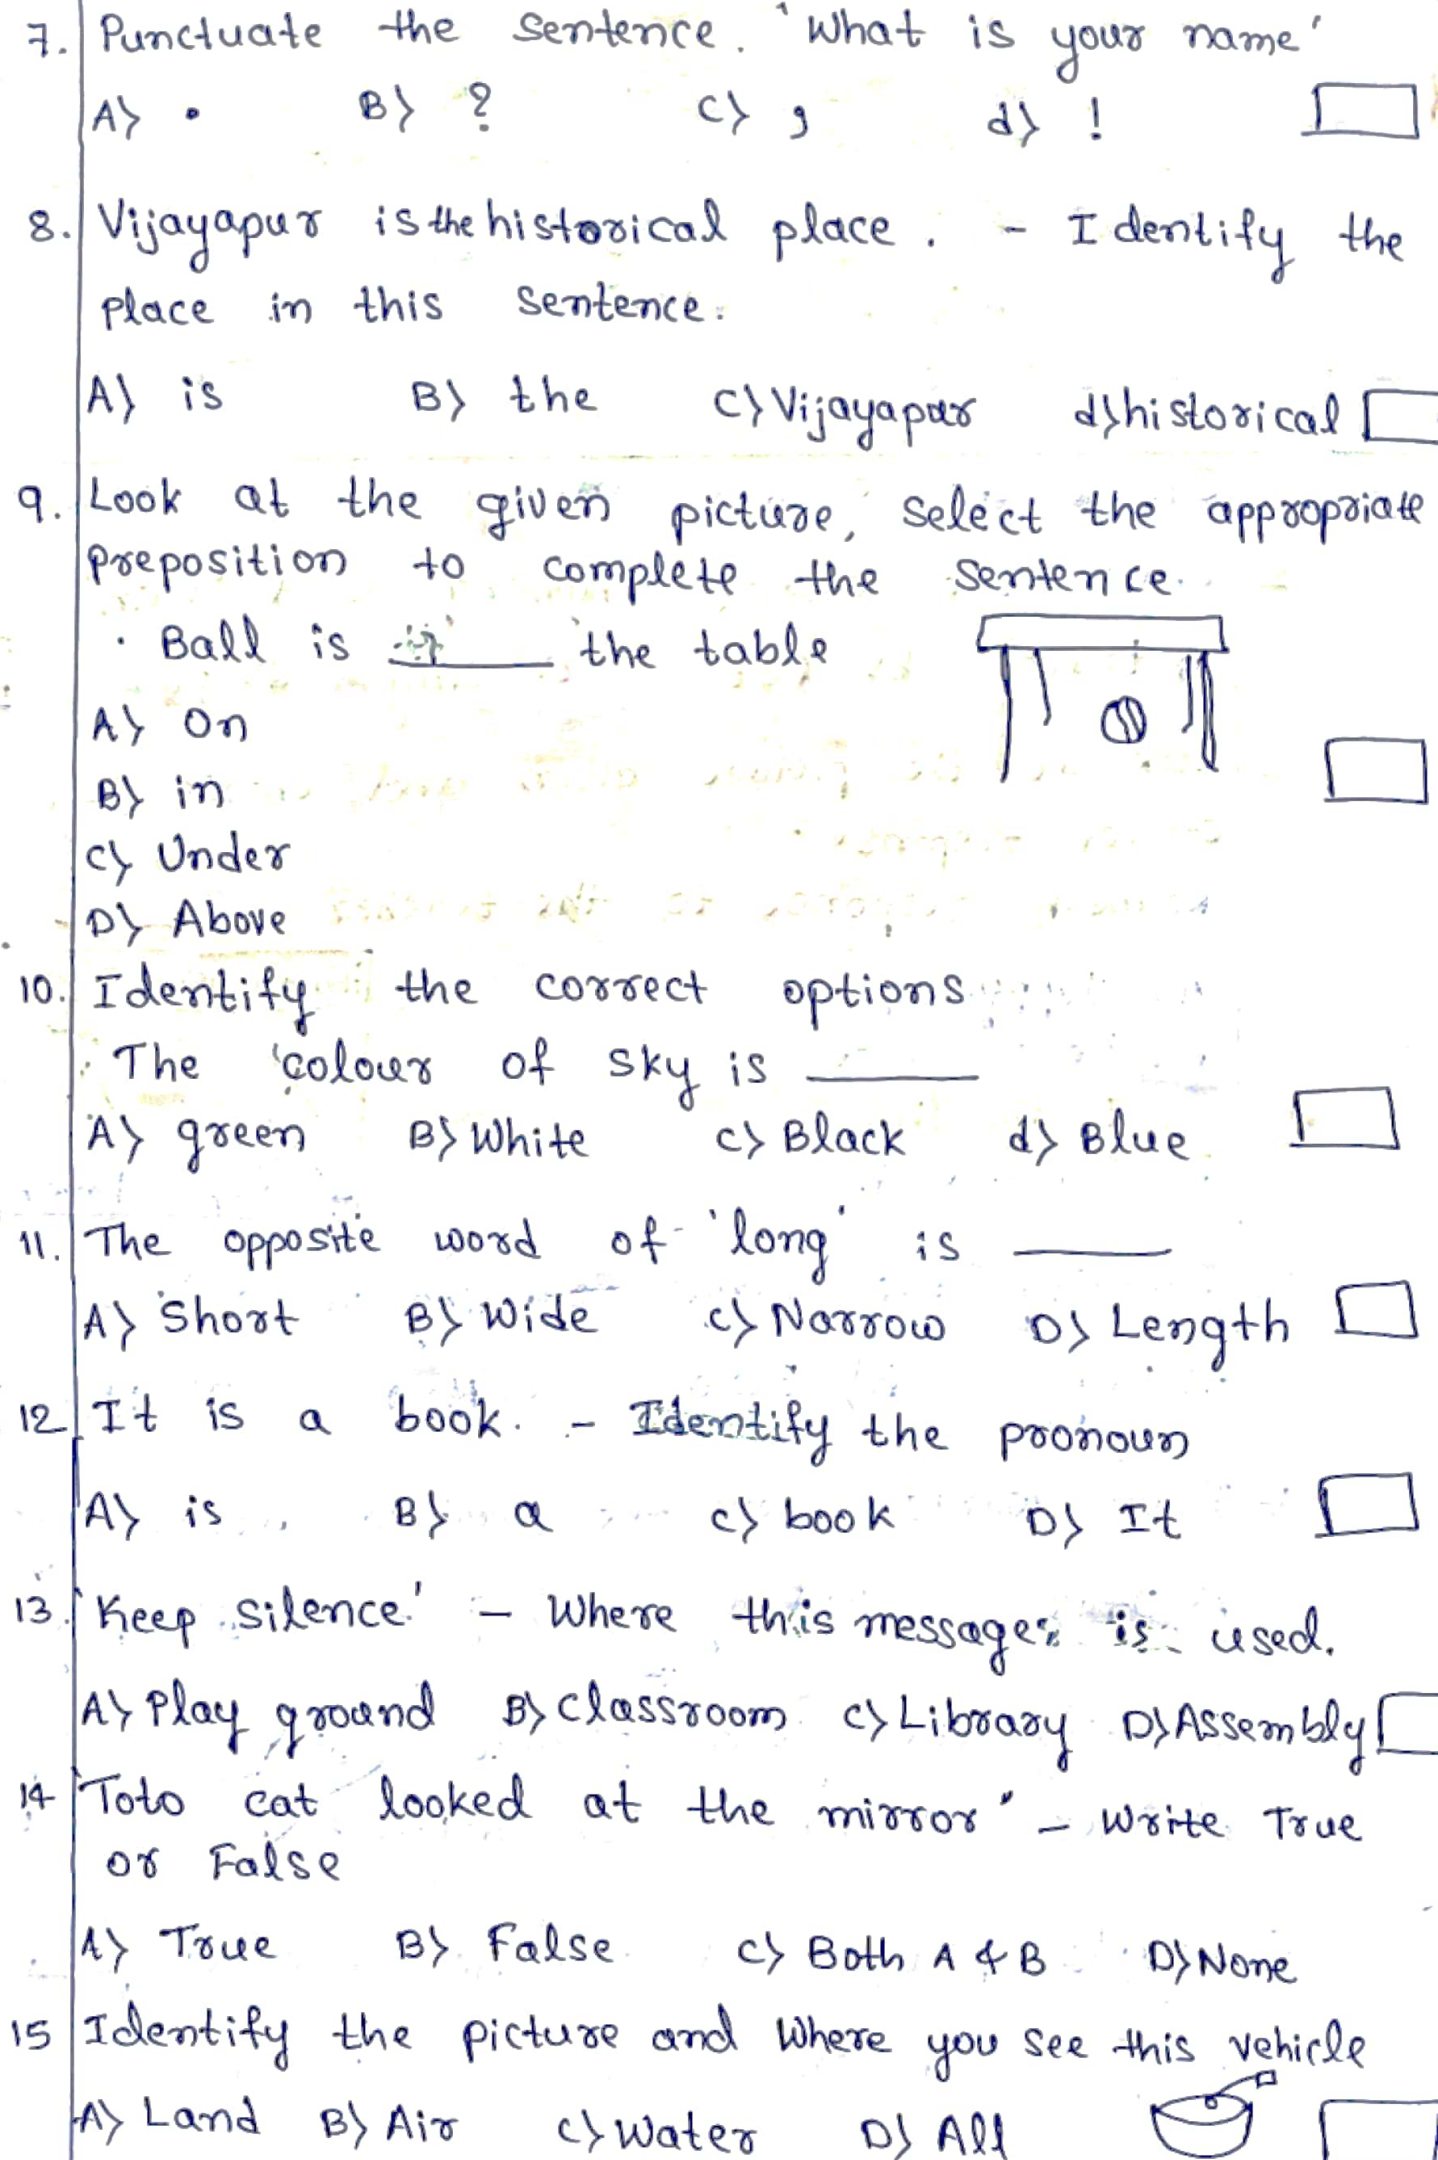 7. Punctuate the sentence. 'What is your name'
A) . B) ? C) , d) !
8. Vijayapur is the historical place. - Identify the
place in this sentence.
A) is B) the C) Vijayapur d) historical
9. Look at the given picture, select the appropriate
preposition to complete the sentence.
. Ball is ____ the table
A) On
B) in
C) Under
D) Above
10. Identify the correct options
. The colour of sky is ____
A) green B) White C) Black d) Blue
11. The opposite word of 'long' is ____
A) Short B) Wide C) Narrow D) Length
12 It is a book. - Identify the pronoun
A) is B) a C) book D) It
13. 'Keep silence.' - Where this message is used.
A) Play ground B) Classroom C) Library D) Assembly
14 'Toto cat looked at the mirror' - Write True
or False
A) True B) False C) Both A & B D) None
15 Identify the picture and Where you see this vehicle
A) Land B) Air C) Water D) All